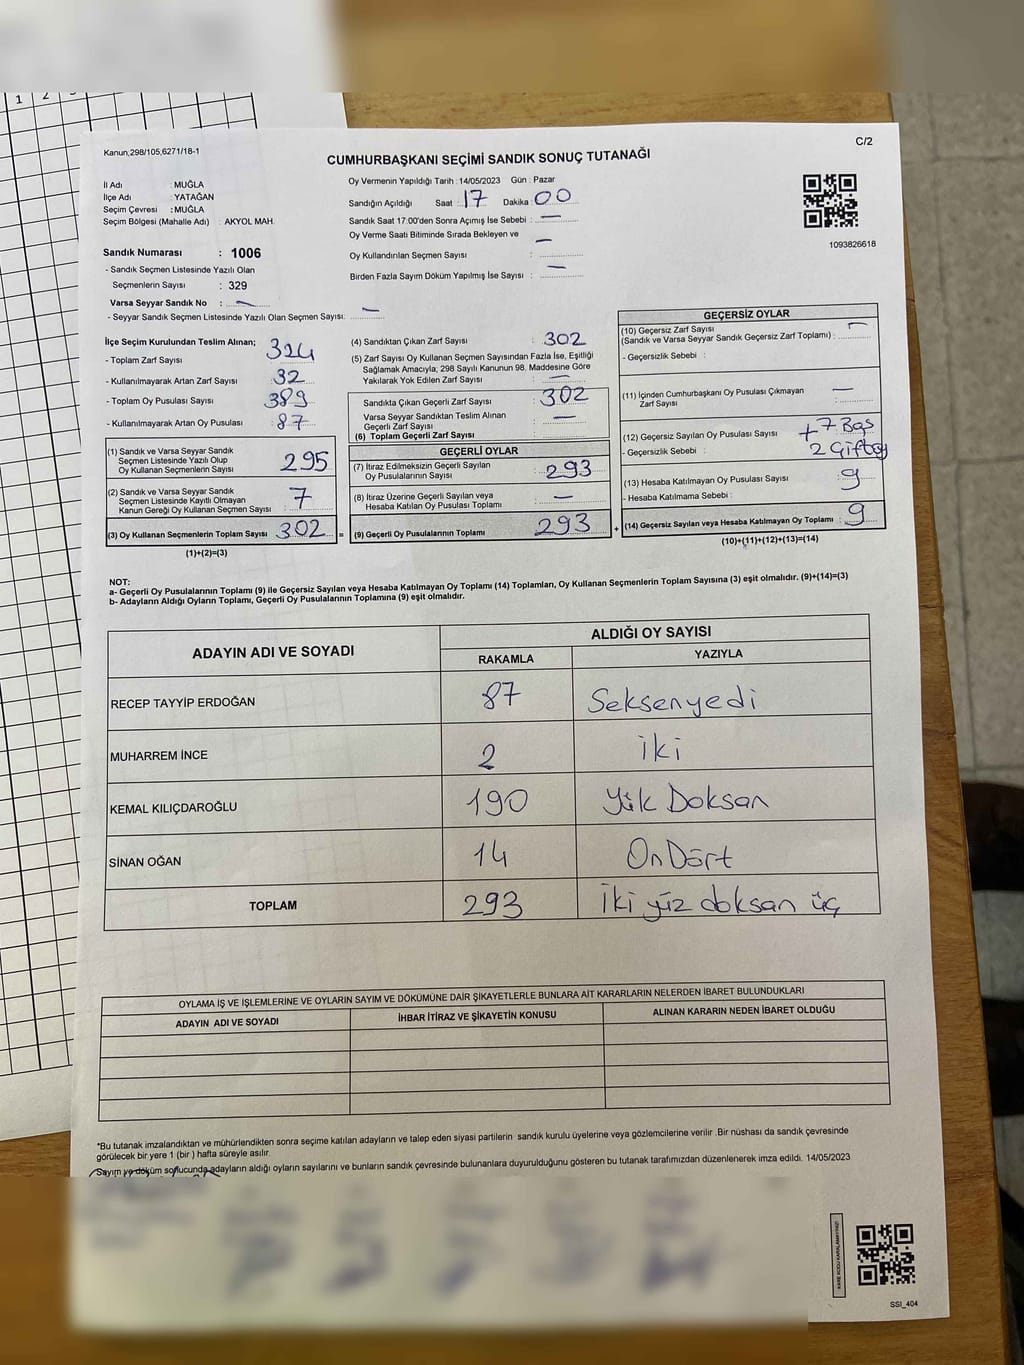 1 2
Kanun,298/105,6271/18-1
C/2
CUMHURBAŞKANI SEÇİMİ SANDIK SONUÇ TUTANAĞI
İl Adı : MUĞLA
İlçe Adı : YATAĞAN
Seçim Çevresi : MUĞLA
Seçim Bölgesi (Mahalle Adı) : AKYOL MAH.
Sandık Numarası : 1006
- Sandık Seçmen Listesinde Yazılı Olan
Seçmenlerin Sayısı : 329
Varsa Seyyar Sandık No : —
- Seyyar Sandık Seçmen Listesinde Yazılı Olan Seçmen Sayısı: —
Oy Vermenin Yapıldığı Tarih : 14/05/2023 Gün : Pazar
Sandığın Açıldığı Saat : 17 Dakika : 00
Sandık Saat 17:00'den Sonra Açımış İse Sebebi : —
Oy Verme Saati Bitiminde Sırada Bekleyen ve —
Oy Kullandırılan Seçmen Sayısı :
Birden Fazla Sayım Döküm Yapılmış İse Sayısı : —
1093826618
İlçe Seçim Kurulundan Teslim Alınan;
- Toplam Zarf Sayısı : 324
- Kullanılmayarak Artan Zarf Sayısı : 32
- Toplam Oy Pusulası Sayısı : 389
- Kullanılmayarak Artan Oy Pusulası : 87
(1) Sandık ve Varsa Seyyar Sandık
Seçmen Listesinde Yazılı Olup
Oy Kullanan Seçmenlerin Sayısı : 295
(2) Sandık ve Varsa Seyyar Sandık
Seçmen Listesinde Kayıtlı Olmayan
Kanun Gereği Oy Kullanan Seçmen Sayısı : 7
(3) Oy Kullanan Seçmenlerin Toplam Sayısı : 302 =
(1)+(2)=(3)
(4) Sandıktan Çıkan Zarf Sayısı : 302
(5) Zarf Sayısı Oy Kullanan Seçmen Sayısından Fazla İse, Eşitliği
Sağlamak Amacıyla, 298 Sayılı Kanunun 98. Maddesine Göre
Yakılarak Yok Edilen Zarf Sayısı : —
Sandıkta Çıkan Geçerli Zarf Sayısı : 302
Varsa Seyyar Sandıktan Teslim Alınan
Geçerli Zarf Sayısı : —
(6) Toplam Geçerli Zarf Sayısı :
GEÇERLİ OYLAR
(7) İtiraz Edilmeksizin Geçerli Sayılan
Oy Pusulalarının Sayısı : 293
(8) İtiraz Üzerine Geçerli Sayılan veya
Hesaba Katılan Oy Pusulası Toplamı : —
(9) Geçerli Oy Pusulalarının Toplamı : 293 +
GEÇERSİZ OYLAR
(10) Geçersiz Zarf Sayısı
(Sandık ve Varsa Seyyar Sandık Geçersiz Zarf Toplamı) : —
- Geçersizlik Sebebi :
(11) İçinden Cumhurbaşkanı Oy Pusulası Çıkmayan
Zarf Sayısı : —
(12) Geçersiz Sayılan Oy Pusulası Sayısı : 7 Boş
- Geçersizlik Sebebi : + 2 Çift oy
(13) Hesaba Katılmayan Oy Pusulası Sayısı : 9
- Hesaba Katılmama Sebebi :
(14) Geçersiz Sayılan veya Hesaba Katılmayan Oy Toplamı : 9
(10)+(11)+(12)+(13)=(14)
NOT:
a- Geçerli Oy Pusulalarının Toplamı (9) ile Geçersiz Sayılan veya Hesaba Katılmayan Oy Toplamı (14) Toplamları, Oy Kullanan Seçmenlerin Toplam Sayısına (3) eşit olmalıdır. (9)+(14)=(3)
b- Adayların Aldığı Oyların Toplamı, Geçerli Oy Pusulalarının Toplamına (9) eşit olmalıdır.
ADAYIN ADI VE SOYADI ALDIĞI OY SAYISI
RAKAMLA YAZIYLA
RECEP TAYYİP ERDOĞAN 87 Seksenyedi
MUHARREM İNCE 2 iki
KEMAL KILIÇDAROĞLU 190 Yük Doksan
SİNAN OĞAN 14 OnDört
TOPLAM 293 İki yüz doksan üç
OYLAMA İŞ VE İŞLEMLERİNE VE OYLARIN SAYIM VE DÖKÜMÜNE DAİR ŞİKAYETLERLE BUNLARA AİT KARARLARIN NELERDEN İBARET BULUNDUKLARI
ADAYIN ADI VE SOYADI İHBAR İTİRAZ VE ŞİKAYETİN KONUSU ALINAN KARARIN NEDEN İBARET OLDUĞU
*Bu tutanak imzalandıktan ve mühürlendikten sonra seçime katılan adayların ve talep eden siyasi partilerin sandık kurulu üyelerine veya gözlemcilerine verilir .Bir nüshası da sandık çevresinde
görülecek bir yere 1 (bir ) hafta süreyle asılır.
Sayım ve döküm sonucunda adayların aldığı oyların sayılarını ve bunların sandık çevresinde bulunanlara duyurulduğunu gösteren bu tutanak tarafımızdan düzenlenerek imza edildi. 14/05/2023
KARE KODU KARALAMAYINIZ!
SSI_404